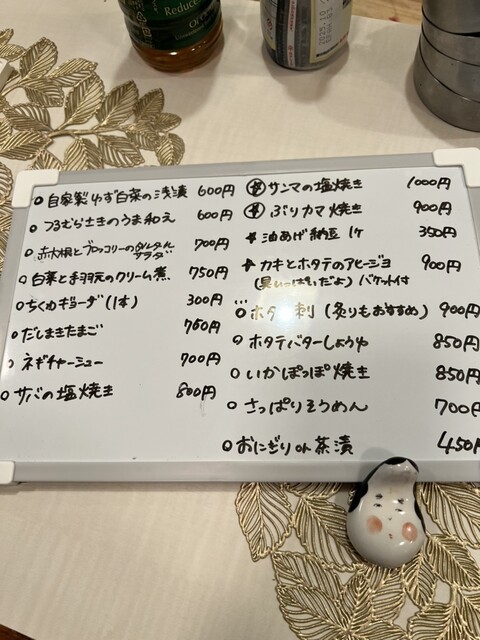 Reduce
○ 自家製ゆず白菜の浅漬 600円
○ つるむらさきのうま和え 600円
○ 赤大根とブロッコリーのタルタルサラダ 700円
○ 白菜と手羽元のクリーム煮 750円
○ ちくわギョーザ(1本) 300円
○ だしまきたまご 750円
○ ネギチャーシュー 700円
○ サバの塩焼き 800円
サンマの塩焼き 1000円
ぶりカマ焼き 900円
★ 油あげ納豆 1ヶ 350円
★ カキとホタテのアヒージョ 900円
(具いっぱいだよ) バケット付
○ ホタテ刺 (炙りもおすすめ) 900円
○ ホタテバターしょうゆ 850円
○ いかぽっぽ焼き 850円
○ さっぱりそうめん 700円
○ おにぎり or 茶漬 450円